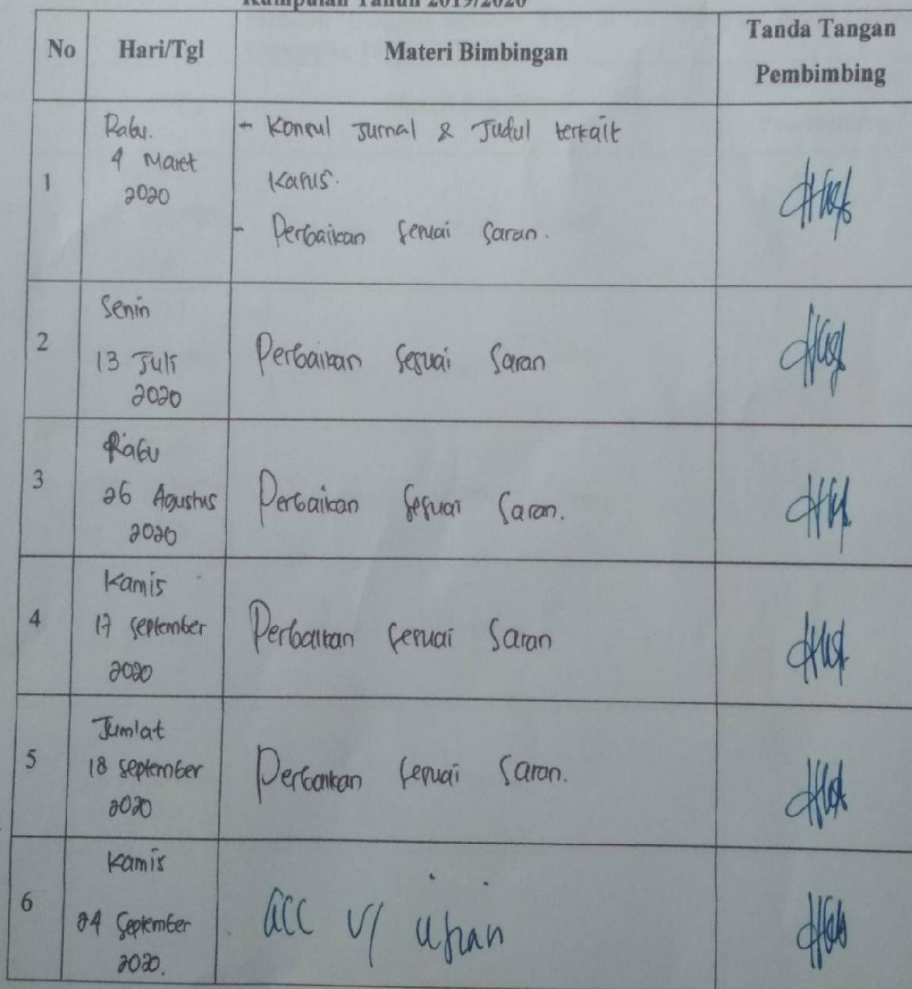 Tahun 2019/2020
No Hari/Tgl Materi Bimbingan Tanda Tangan
Pembimbing
1
Rabu.
4 Maret
2020
- Konsul Jurnal & Judul terkait
Kasus.
- Perbaikan sesuai saran.
2
Senin
13 Juli
2020
Perbaikan sesuai Saran
3
Rabu
26 Agustus
2020
Perbaikan sesuai saran.
4
Kamis
17 September
2020
Perbaikan sesuai saran
5
Jum'at
18 September
2020
Perbaikan sesuai saran.
6
Kamis
24 September
2020.
acc u/ ujian